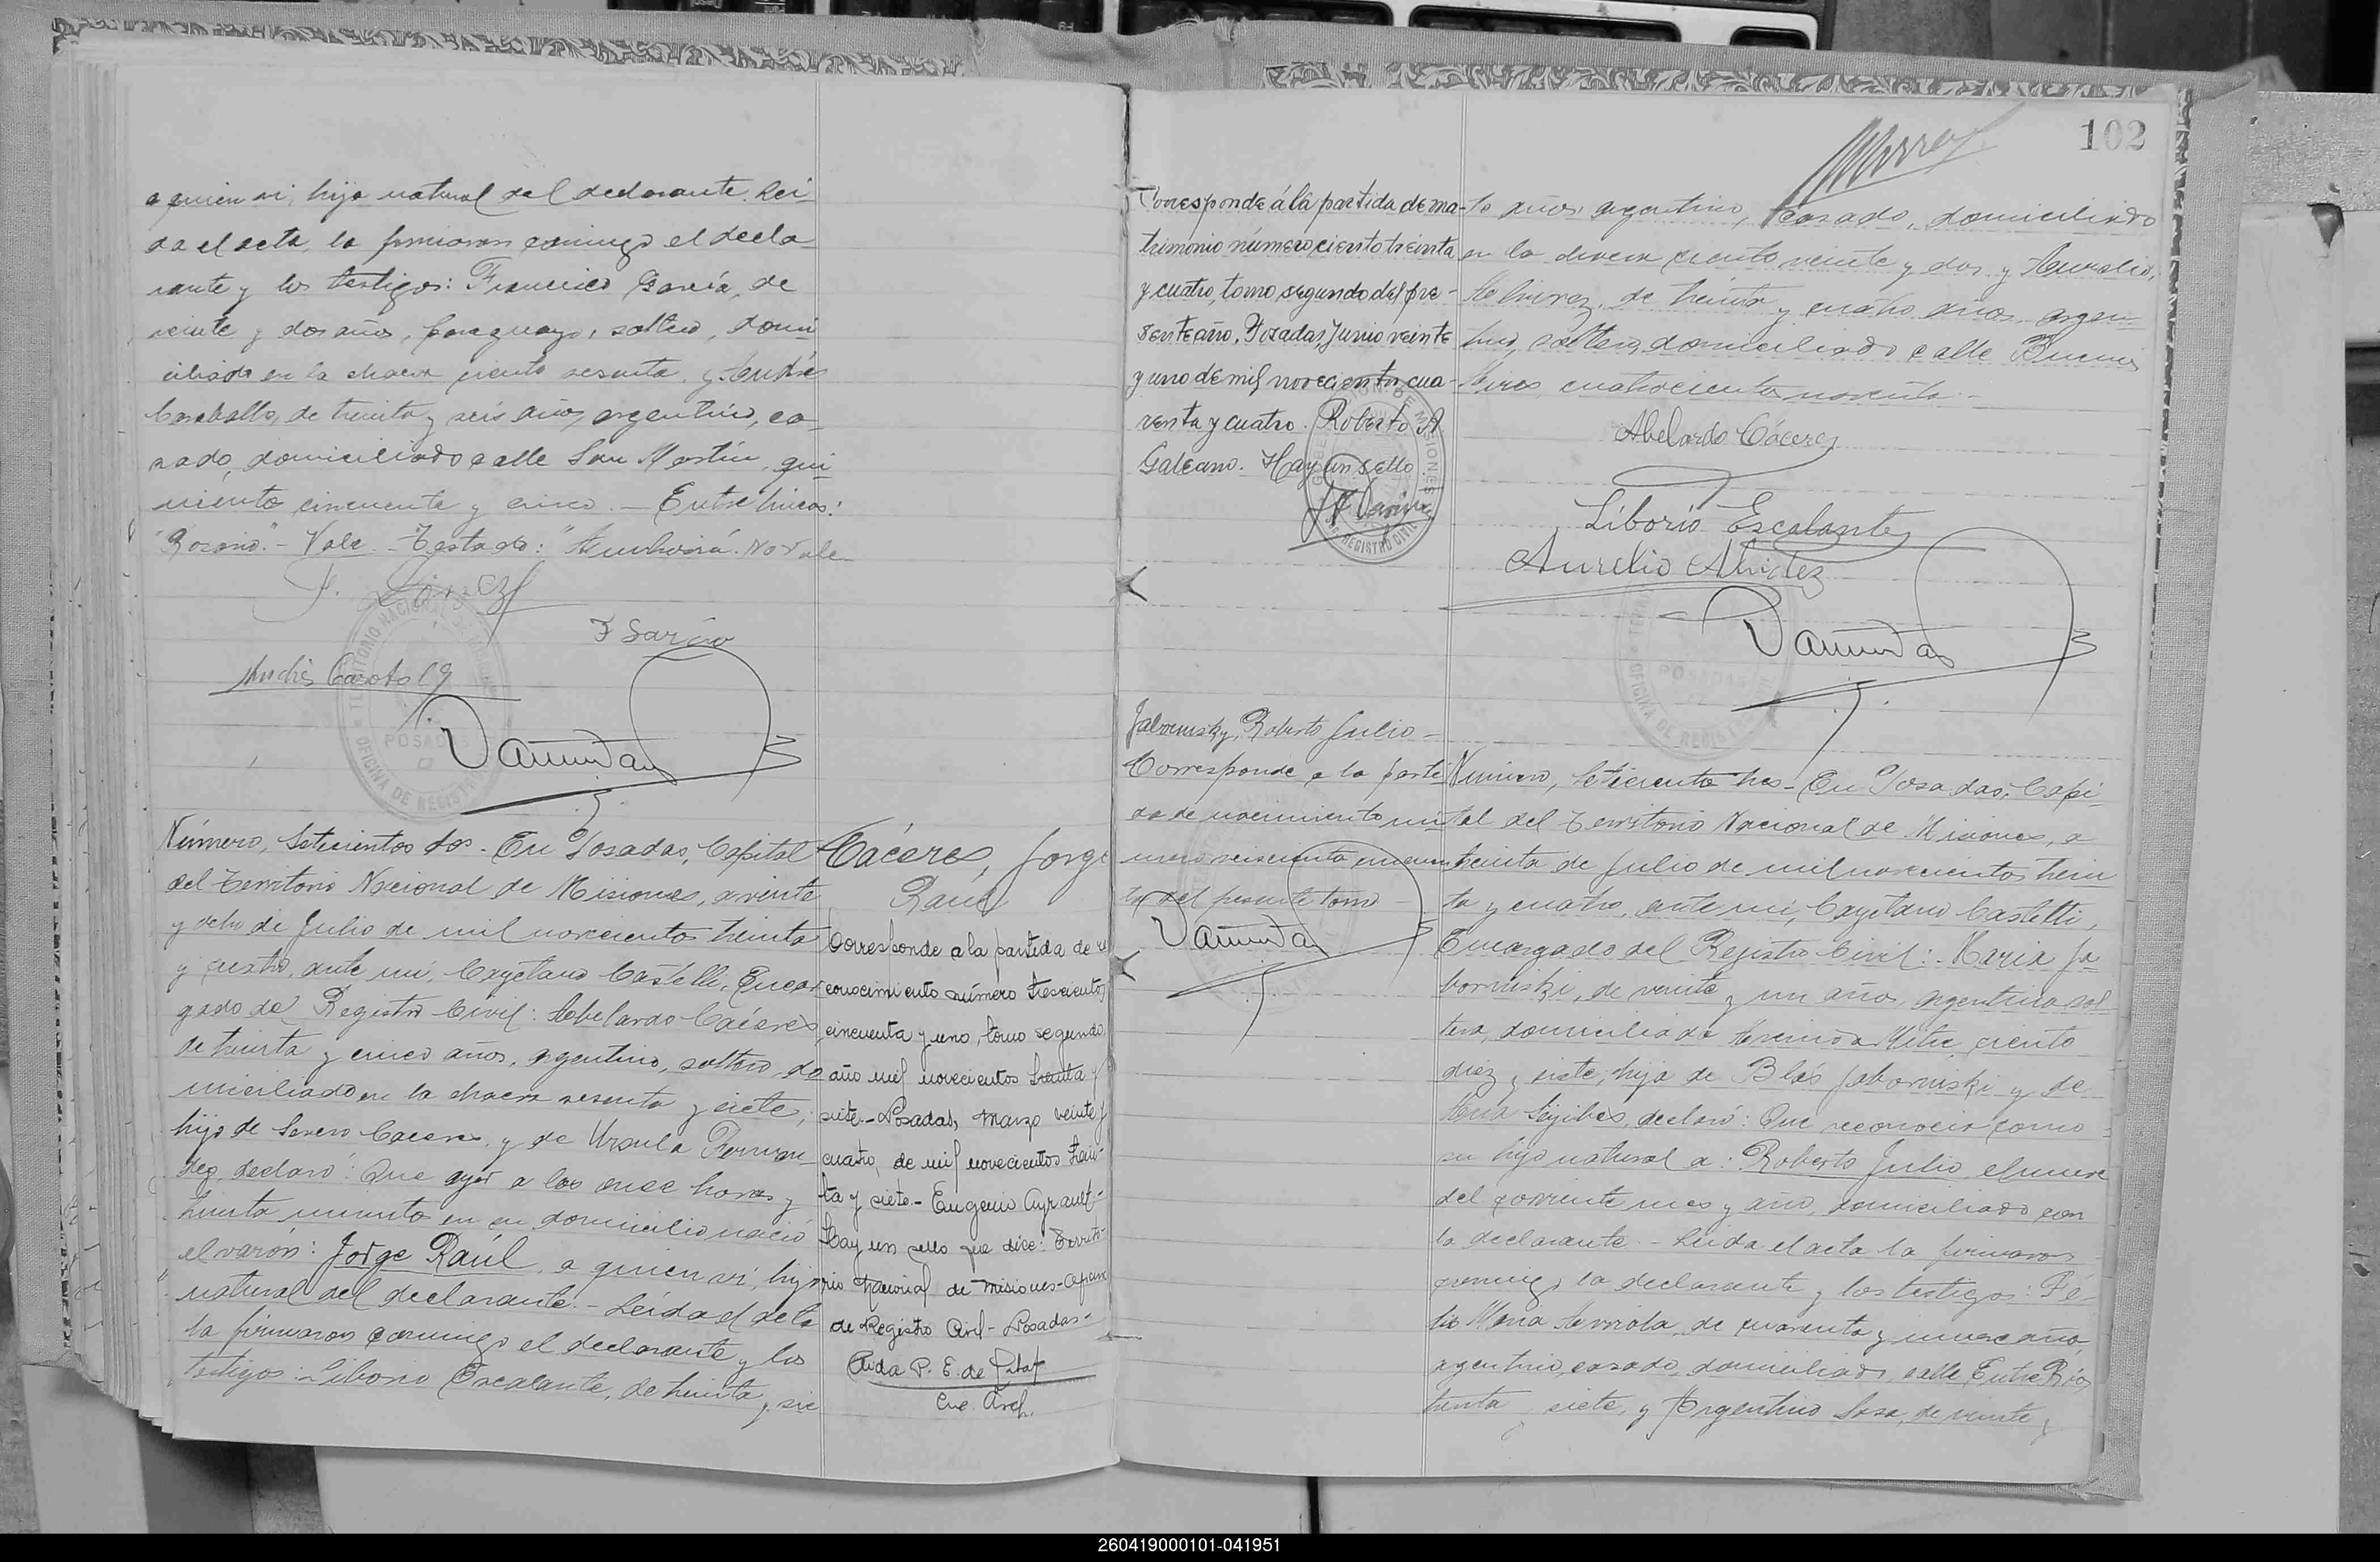 a quien vi, hijo natural del declarante. Leí-
da el acta, la firmaron conmigo el decla-
rante y los testigos: Francisco García, de
veinte y dos años, paraguayo, soltero, domi-
ciliado en la chacra ciento sesenta, y Andrés
Caraballo, de treinta y seis años, argentino, ca-
sado, domiciliado calle San Martín, qui-
niento cincuenta y cinco.— Entre líneas:
"Rosario."- Vale.- Testado: No vale
F Garcia
POSADAS
OFICINA DE REGISTRO
Número, Setecientos dos.- En Posadas, Capital
del Territorio Nacional de Misiones, a veinte
y ocho de Julio de mil novecientos treinta
y cuatro, ante mí, Cayetano Castelli, Encar-
gado del Registro Civil: Abelardo Cáceres
de treinta y cinco años, argentino, soltero, do
miciliado en la chacra sesenta y siete,
hijo de Severo Caceres, y de Ursula Fernan-
dez, declaró: Que ayer a las once horas y
treinta minutos en su domicilio nació
el varón: Jorge Raúl, a quien vi, hijo
natural del declarante.- Leída el acta
la firmaron conmigo el declarante y los
testigos: Liborio Escalante, de treinta y sie
Cáceres, Jorge
Raúl
Corresponde a la partida de re
conocimiento número trescientos
cincuenta y uno, tomo segundo
año mil novecientos treinta y
siete.- Posadas, Marzo veinte y
cuatro, de mil novecientos trein-
ta y siete- Eugenio Ayrault-
Hay un sello que dice: Territo-
rio Nacional de Misiones-Oficina
de Registro Civil- Posadas-
Aida P. E. de
Enc. Arch.
102
Corresponde á la partida de ma-
trimonio número ciento treinta
y cuatro, tomo segundo del pre-
sente año, Posadas, Junio veinte
y uno de mil novecientos cua-
renta y cuatro. Roberto A
Galeano. Hay un sello
te años, argentino, casado, domiciliado
en la chacra ciento veinte y dos y Aurelio,
Alvirez, de treinta y cuatro años, argen-
tino, soltero, domiciliado calle Buenos
Aires, cuatrocientos noventa.-
Abelardo Cáceres
Liborio Escalante
Aurelio Alvirez
POSADAS
OFICINA DE REGISTRO
Jabornisky, Roberto Julio-
Corresponde a la parti
da de nacimiento nú-
mero seiscientos
del presente tomo
Número, Setecientos tres- En Posadas, Capi-
tal del Territorio Nacional de Misiones, a
treinta de Julio de mil novecientos trein
ta y cuatro, ante mí, Cayetano Castelli,
Encargado del Registro Civil: Maria Ja-
borniski, de veinte y un años, argentina sol
tera, domiciliada Avenida Mitre, ciento
diez y siete, hija de Blás Jaborniski y de
declaró: Que reconocia como
su hijo natural a: Roberto Julio, el nueve
del corriente mes y año, domiciliado con
la declarante.- Leída el acta la firmaron
conmigo la declarante y los testigos: Fé-
lix Maria Arriola, de cuarenta y nueve años,
argentino, casado, domiciliado calle Entre Ríos
treinta y siete, y Argentino Sosa, de veinte y
260419000101-041951